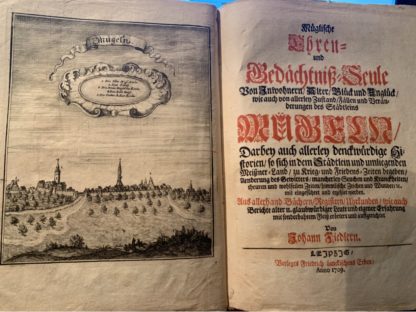 Mügeln.
Müglische
Ehren-
und
Gedächtniß-Seule
Von Inwohnern/ Alter/ Glück und Unglück/
wie auch von allerley Zustand/ Fällen und Verän-
derungen des Städtleins
MÜGELN/
Darbey auch allerley denckwürdige Hi-
storien/ so sich in dem Städtlein und umliegenden
Meißner-Land/ zu Krieg- und Friedens-Zeiten begeben/
Aenderung des Gewitters/ mancherley Seuchen und Kranckheiten/
theuren und wohlfeilen Zeiten/ himmlische Zeichen und Wunder ꝛc.
mit eingeführet und
Aus allerhand Büchern/ Registern/ Uhrkunden/ wie auch
Bericht alter u. glaubwürdiger Leute und eigener Erfahrung
mit sonderbahrem Fleiß
Von
Johann Fiedlern.
LEIPZIG/
Verlegts Friedrich Lanckischens Erben/
Anno 1709.